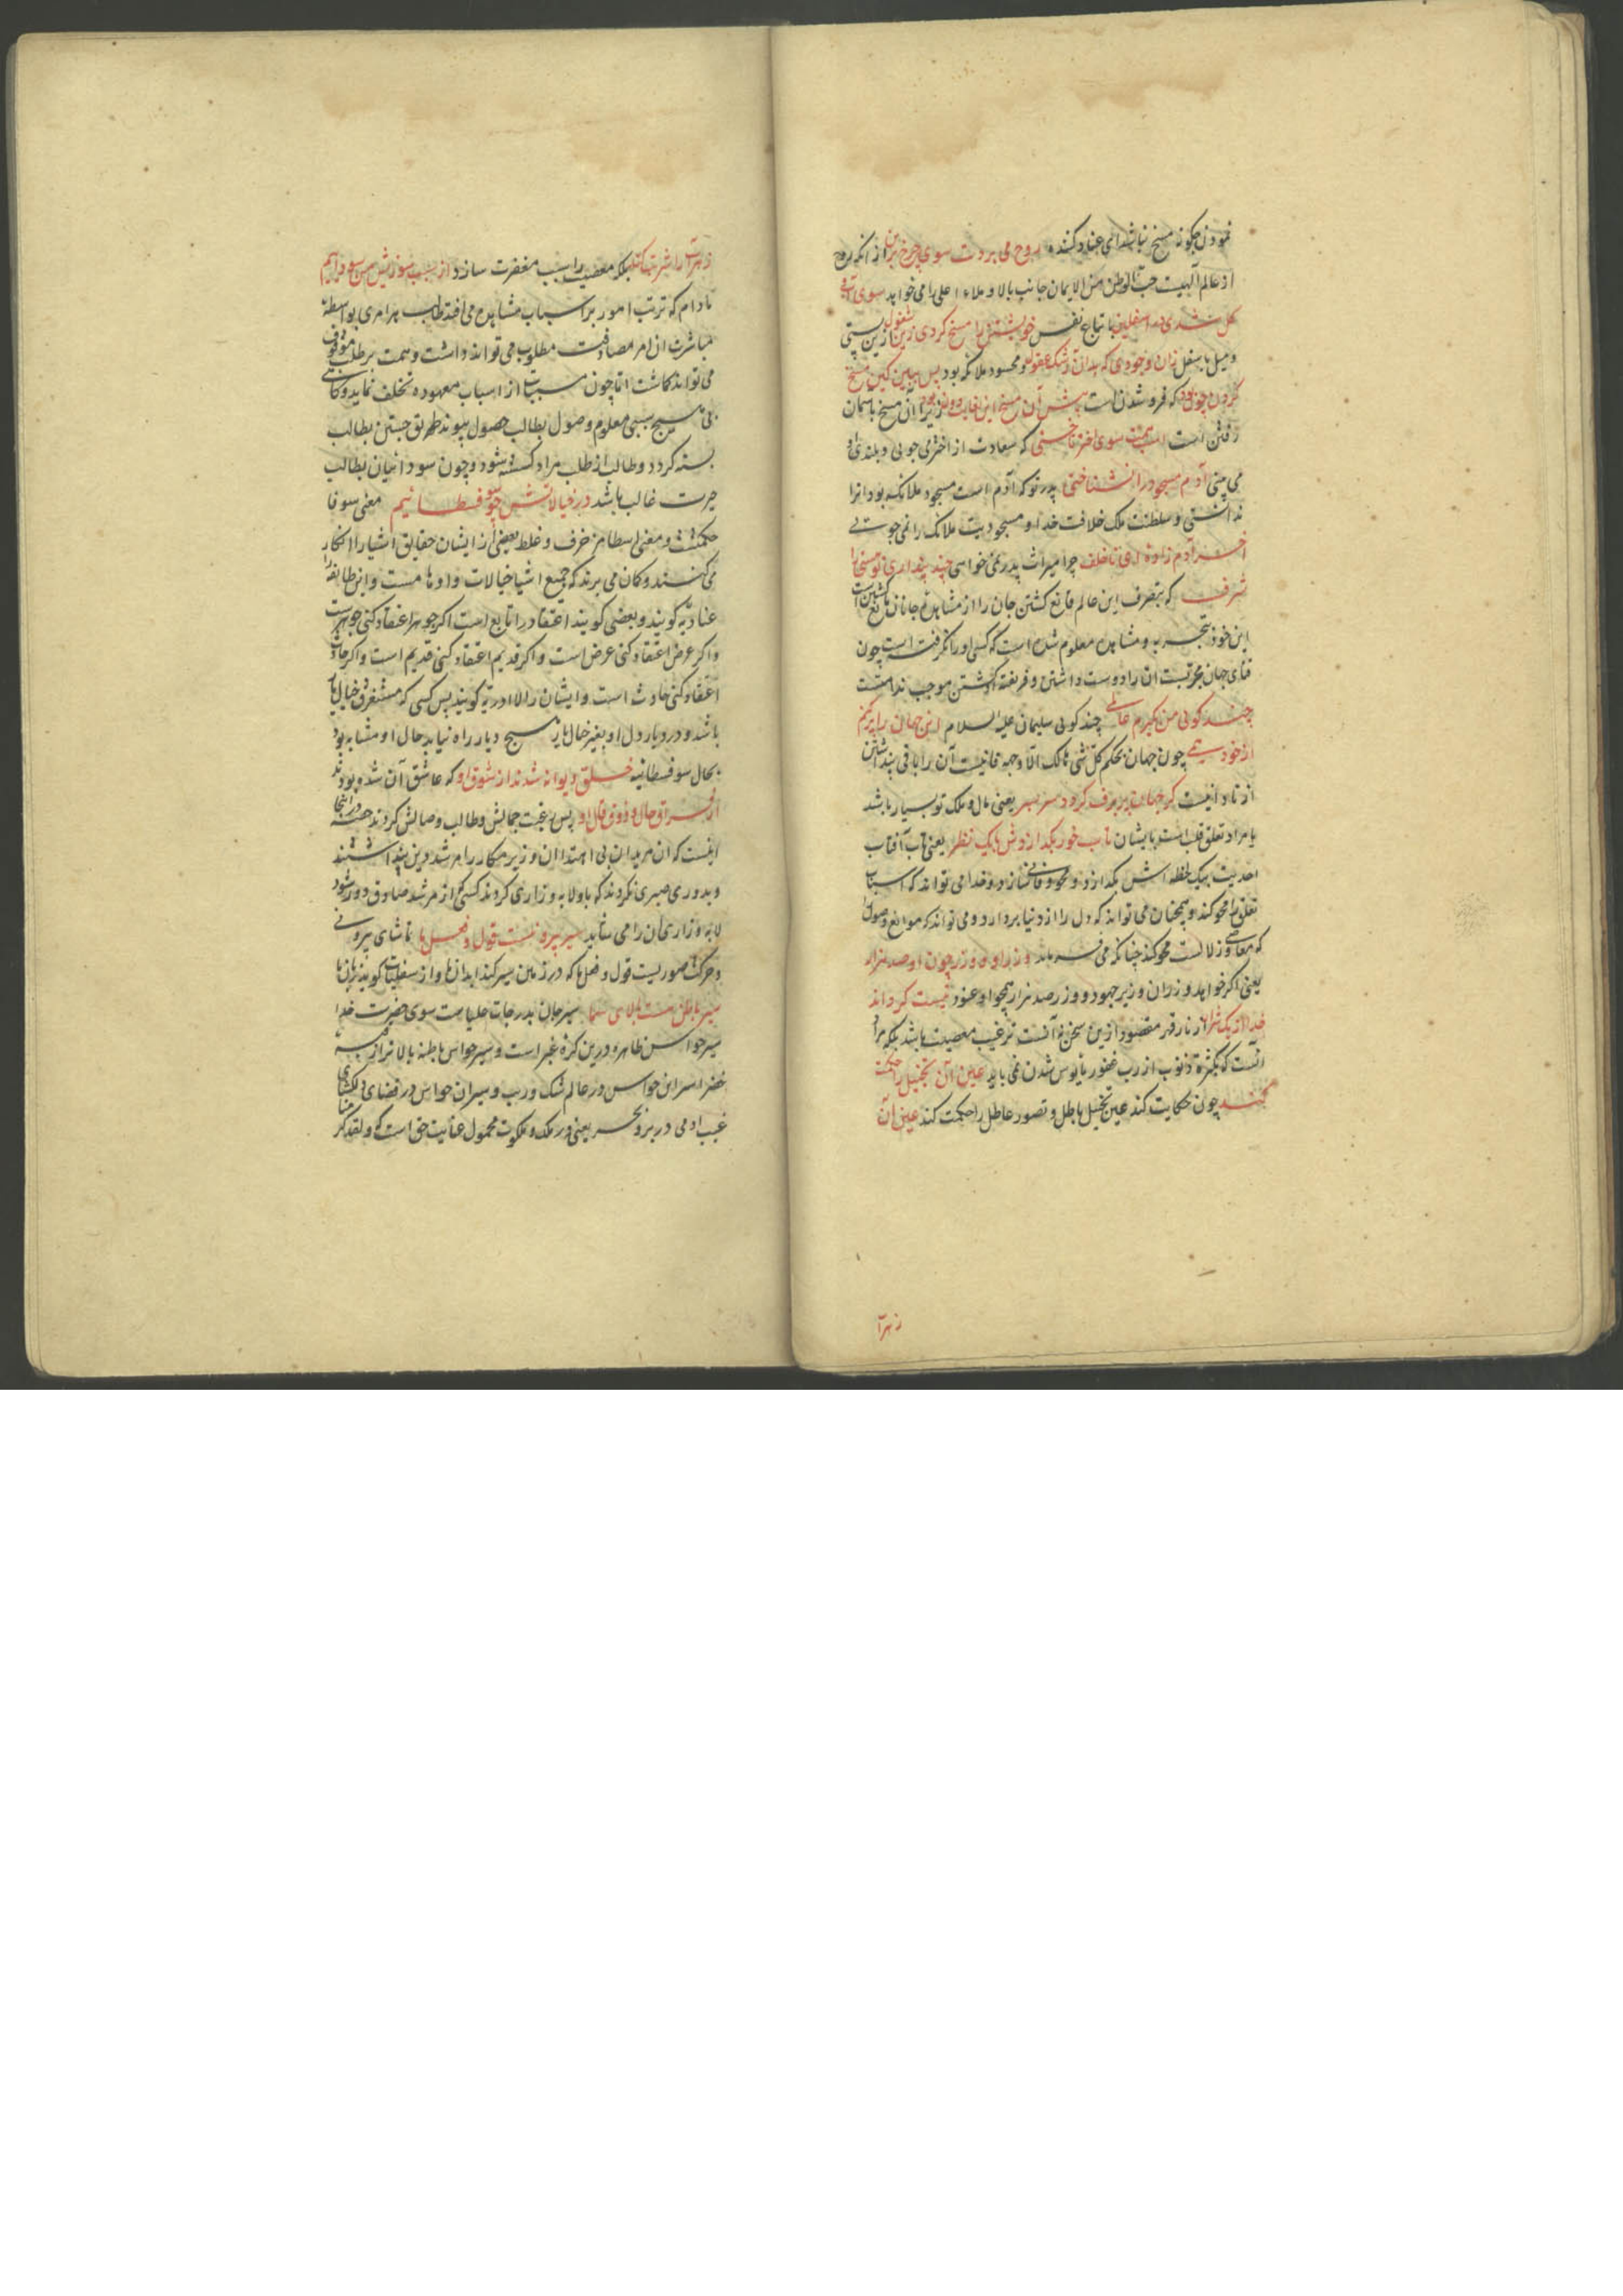 نمودن چگونه مسخ نباشد ای عناد کننده روح می بردت سوی چرخ برین از آنکه روح
از عالم الهیت حب الوطن من الایمان جانب بالا و ملاء اعلی را می خواهد سوی آب و
گل شدی در اسفلین باتباع نفس خویشتن را مسخ کردی زین سفول ازین پستی
و میل باسفل زان وجودی که بد آن رشک عقول و محسود ملائکه بود پس ببین کین مسخ
کردن چون بود که فروشدن است پیش آن مسخ این بغایت دون بود زیرا آن مسخ باسمان
رفتن است اسب همت سوی اختر تاختی که سعادت از اختر می جویی و بلندی او
می بینی آدم مسجود را نشناختی پدر تو که آدم است مسجود ملائکه بود او را
ندانستی و سلطنت ملک خلافت خدا و مسجودیت ملائکه را نمی جویی
آخر آدم زاده ای ناخلف چرا میراث پدر نمی خواهی چند پنداری تو پستی را
شرف که بتصرف این عالم قانع گشتن جان را از مشاهده جانان مانع گشتن است
این خود بتجربه و مشاهده معلوم شده است که کسی او را نگرفته است چون
فنای جهان مجربست آن را دوست داشتن و فریفته او گشتن موجب ندامتست
چند گویی من بگیرم عالمی چند گویی سلیمان علیه السلام این جهان را پر کنم
از خود همی چون جهان بحکم کل شی هالک الا وجهه فانیست آن را باقی پنداشتن
از نادانیست گر جهان پر برف گردد سربسر یعنی مال و ملک تو بسیار باشد
یا مراد تعلق قلب است بایشان تاب خور بگدازدش با یک نظر یعنی تاب آفتاب
احدیت بیک لحظه اش بگدازد و محو و فانی سازد و خدا می تواند که اسباب
تعلق را محو کند و همچنان می تواند که دل را از دنیا بردارد و می تواند که موانع وصول
که معاصی و زلالست محو کند چنانکه می فرماید وزر او و وزر چون او صد هزار
یعنی اگر خواهد وزر آن وزیر جهود و وزر صد هزار همچو او عنود نیست گرداند
خدا از یک شرار از نار قهر مقصود ازین سخن نه آنست ترغیب معصیت باشد بلکه مراد
آنست که بکثرة ذنوب از رب غفور مایوس شدن نمی باید عین آن تخییل را حکمت
کند چون حکایت کند عین تخییل باطل و تصور عاطل را حکمت کند عین آن
زهر آ
زهر آب را شربت کند بلکه معصیت را سبب مغفرت سازد از سبب سوزیش من سودایم
مادام که ترتب امور بر اسباب مشاهده می افتد طالب هر امری بواسطه
مباشرت آن امر مصادفت مطلوب می تواند داشت و همت بر طلب موقوف
می تواند گماشت اما چون مسببات از اسباب معهوده تخلف نماید و گاهی
بی هیچ سببی معلوم وصول بطالب حصول پیوندد طریق جستن بطالب
بسته گردد و طالب از طلب مراد گسسته شود و چون سودائیان بطالب
حیرت غالب باشد در خیالاتش چو سوفسطائیم معنی سوفا
حکمتست و معنی اسطا مزخرف و غلط بعضی از ایشان حقایق اشیا را انکار
می کنند و گمان می برند که جمیع اشیا خیالات و اوهامست و این طایفه را
عنادیه گویند و بعضی گویند اعتقاد را تابع است اگر جوهر اعتقاد کنی جوهرست
و اگر عرض اعتقاد کنی عرض است و اگر قدیم اعتقاد کنی قدیم است و اگر حادث
اعتقاد کنی حادث است و ایشان را لاادریه گویند پس کسی که مستغرق خیال یار
باشد و در دیار دل او بغیر خیال یار هیچ دیار راه نیابد حال او مشابه بود
بحال سوفسطائیه خلق دیوانه شدند از شوق او که عاشق آن شده بودند
از فراق حال و ذوق قال او پس رغبت جمالش و طالب وصالش کردند حصه در اینجا
اینست که آن مریدان بی اهتدا آن وزیر مکار را مرشد دین پنداشتند
و بدوری صبری نکردند که با و لابه و زاری کردند کسی کز مرشد صادق دور شود
لابه و زاری آن را می شاید سیر بیرونیست قول و فعل ها تماشای بیرونی
و حرکت صوریست قول و فعل ها که در زمین سیر کند ابدان ها و از سفلیات گویند زبان ها
سیر باطن هست بالای سما سیر جان بدرجات علیاست سوی حضرت خدا
سیر حواس ظاهره درین کره غبر است و سیر حواس باطنه بالاتر از قبه
خضرا سیر این حواس در عالم شک و ریب و سیر آن حواس در فضای دلگشای
غیب آدمی در بر و بحر یعنی در ملک و ملکوت محمول عنایت حق است که و لقد کرمنا